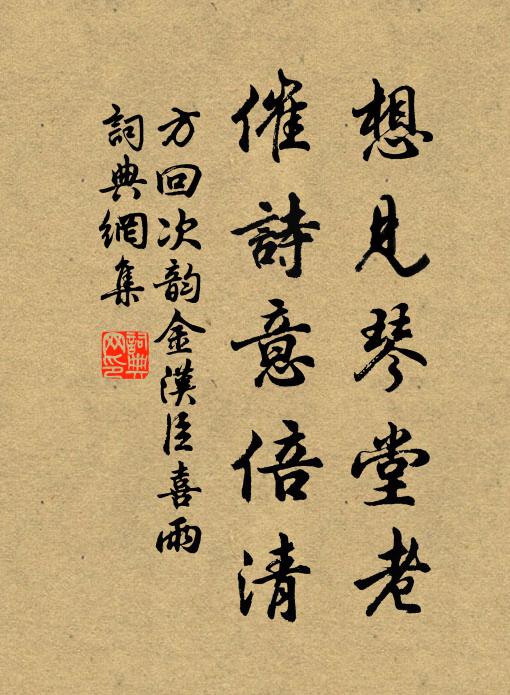 想見琴堂老
催詩意倍清
方回次韵金漢臣喜雨
詞典網集
詞典网印